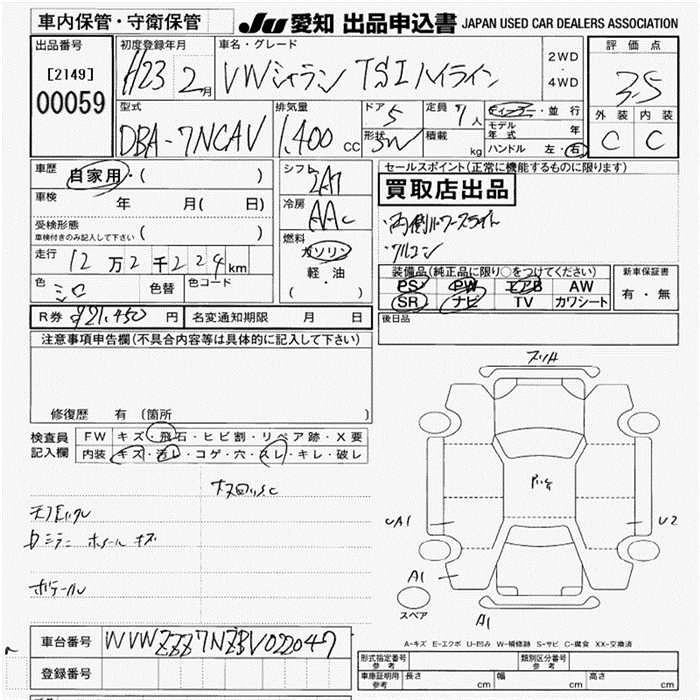 車内保管・守衛保管
JU 愛知 出品申込書 JAPAN USED CAR DEALERS ASSOCIATION
出品番号
[2149]
00059
初度登録年月
H23 2月
車名・グレード
VWシャラン TSIハイライン
2WD
・
4WD
評価点
3.5
外装 内装
C C
型式
DBA-7NCAV
排気量
1,400 cc
ドア 5
形状 SW
定員 7人
積載 kg
ディーラー・並行
モデル年式 年
ハンドル 左・右
車歴
自家用・( )
車検 年 月( 日)
受検形態
車検付きのみ記入して下さい ( )
走行 12万2千229km
色 シロ
色替
色コード
R券 ¥21,450円
名変通知期限 月 日
シフト
冷房
AAC
燃料
ガソリン
軽・油
( )
セールスポイント(正常に機能するものに限ります)
買取店出品
・両側パワースライド
装備品(純正品に限り○をつけてください)
PS PW エアB AW
SR ナビ TV カワシート
新車保証書
有・無
後日品
注意事項申告欄(不具合内容等は具体的に記入して下さい)
修復歴 有 (箇所 )
検査員記入欄
FW キズ・飛石・ヒビ割・リペア跡・X要
内装 キズ・汚レ・コゲ・穴・スレ・キレ・破レ
Dミラー ホイール キズ
UA1
U2
A1
A1
スペア
A-キズ E-エクボ U-凹み W-補修跡 S-サビ C-腐食 XX-交換済
車台番号 WVWZZZ7NZBV022047
登録番号
形式指定番号 参考
類別区分番号 参考
車庫証明用 参考
長さ cm 幅 cm 高さ cm